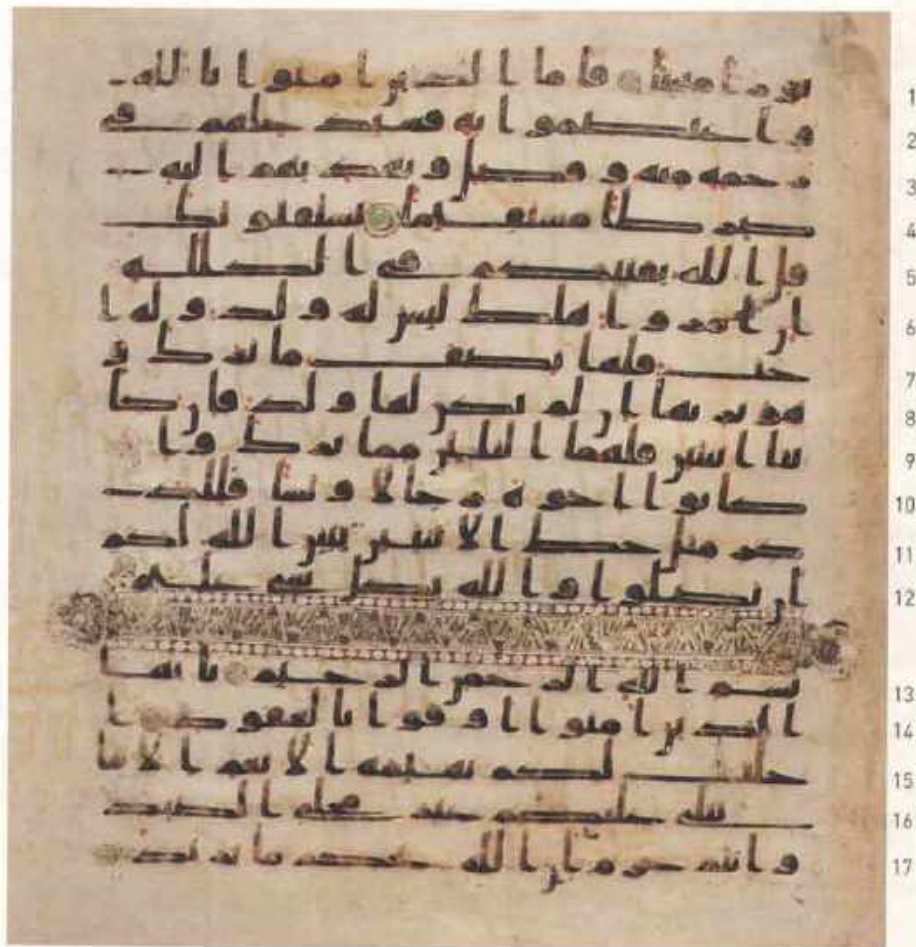 نورا مبينا فاما الذين امنوا بالله 1
واعتصموا به فسيدخلهم في 2
رحمة منه وفضل ويهديهم اليه 3
صرطا مستقيما يستفتونك 4
قل الله يفتيكم في الكللة 5
ان امرؤا هلك ليس له ولد وله ا 6
خت فلها نصف ما ترك و 7
هو يرثها ان لم يكن لها ولد فان كا 8
نتا اثنتين فلهما الثلثن مما ترك وان 9
كانوا اخوة رجالا ونسا فللذ 10
كر مثل حظ الانثيين يبين الله لكم 11
ان تضلوا والله بكل شي عليم 12
بسم الله الرحمن الرحيم يايها 13
الذين امنوا اوفوا بالعقود ا 14
حلت لكم بهيمة الانعم الا ما 15
يتلى عليكم غير محلي الصيد 16
وانتم حرم ان الله يحكم ما يريد 17